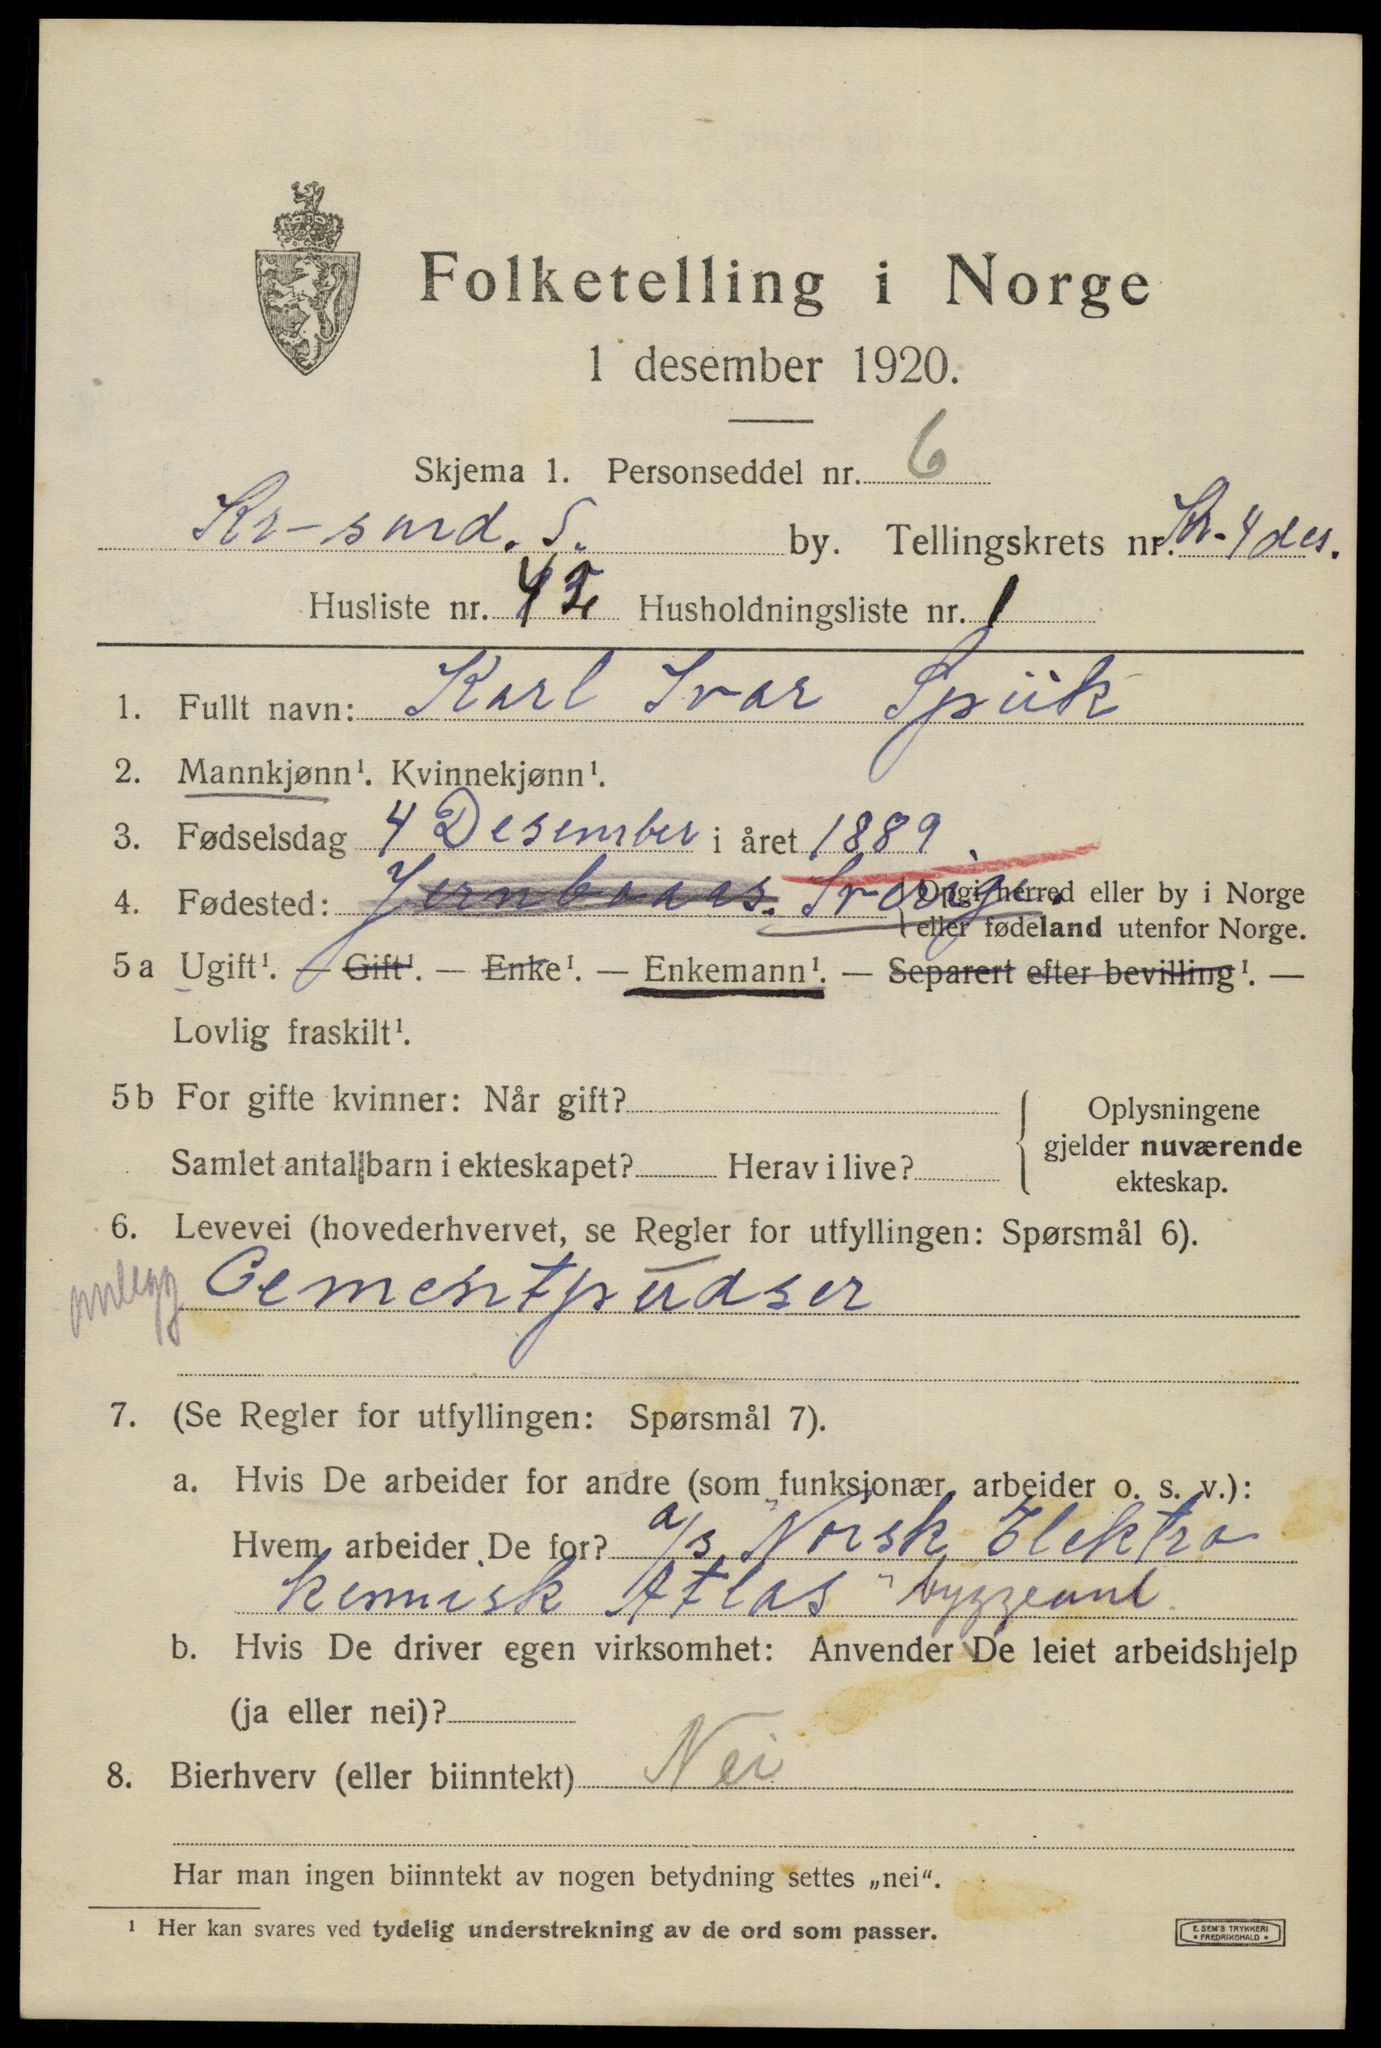 Folketelling i Norge
1 desember 1920.
Skjema 1. Personseddel nr. 6
Kr-sand. S. by. Tellingskrets nr. Kr-4 des.
Husliste nr. 42 Husholdningsliste nr. 1
1. Fullt navn: Karl Ivar Spiik
2. Mannkjønn¹. Kvinnekjønn¹.
3. Fødselsdag 4 Desember i året 1889.
4. Fødested: Jernboaas. Sverige. { Opgi herred eller by i Norge
eller fødeland utenfor Norge.
5a Ugift¹. — Gift¹. — Enke¹. — Enkemann¹. — Separert efter bevilling¹. —
Lovlig fraskilt¹.
5b For gifte kvinner: Når gift?
Samlet antal barn i ekteskapet? Herav i live?
{ Oplysningene
gjelder nuværende
ekteskap.
6. Levevei (hovederhvervet, se Regler for utfyllingen: Spørsmål 6).
anlegg Cementpudser
7. (Se Regler for utfyllingen: Spørsmål 7).
a. Hvis De arbeider for andre (som funksjonær, arbeider o. s. v.):
Hvem arbeider De for? a/s "Norsk Elektro
kemisk Atlas" byggeanl.
b. Hvis De driver egen virksomhet: Anvender De leiet arbeidshjelp
(ja eller nei)?
8. Bierhverv (eller biinntekt) Nei
Har man ingen biinntekt av nogen betydning settes „nei“.
¹ Her kan svares ved tydelig understrekning av de ord som passer.
E. SEM'S TRYKKERI
• FREDRIKSHALD •